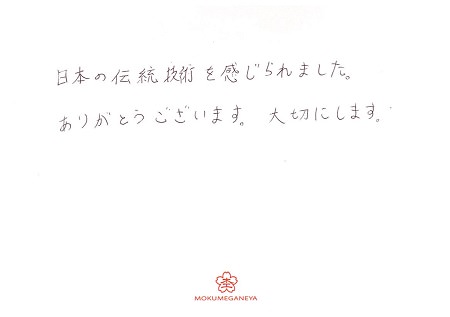 日本の伝統技術を感じられました。
ありがとうございます。 大切にします。
MOKUMEGANEYA